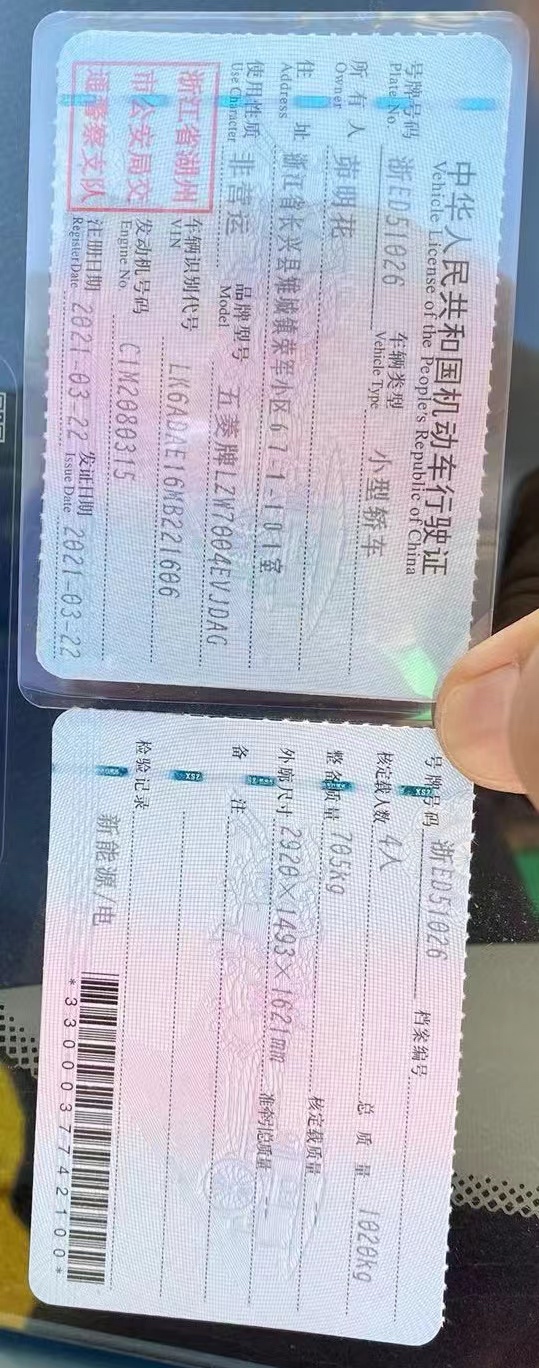 中华人民共和国机动车行驶证
Vehicle License of the People's Republic of China
号牌号码 浙ED51026 车辆类型 小型轿车
Plate No. Vehicle Type
所有人 明花
Owner
住址 浙江省长兴县雉城镇荣军小区67-1-101室
Address
使用性质 非营运 品牌型号 五菱牌LZW7004EVJDAG
Use Character Model
浙江省湖州
市公安局交
通警察支队
车辆识别代号 LK6ADAE16MB221606
VIN
发动机号码 C1M2080315
Engine No.
注册日期 2021-03-22 发证日期 2021-03-22
Register Date Issue Date
号牌号码 浙ED51026 档案编号
核定载人数 4人 总质量 1020kg
整备质量 705kg 核定载质量 --
外廓尺寸 2920×1493×1621mm 准牵引总质量 --
备注
检验记录
新能源/电
*3300037742100*